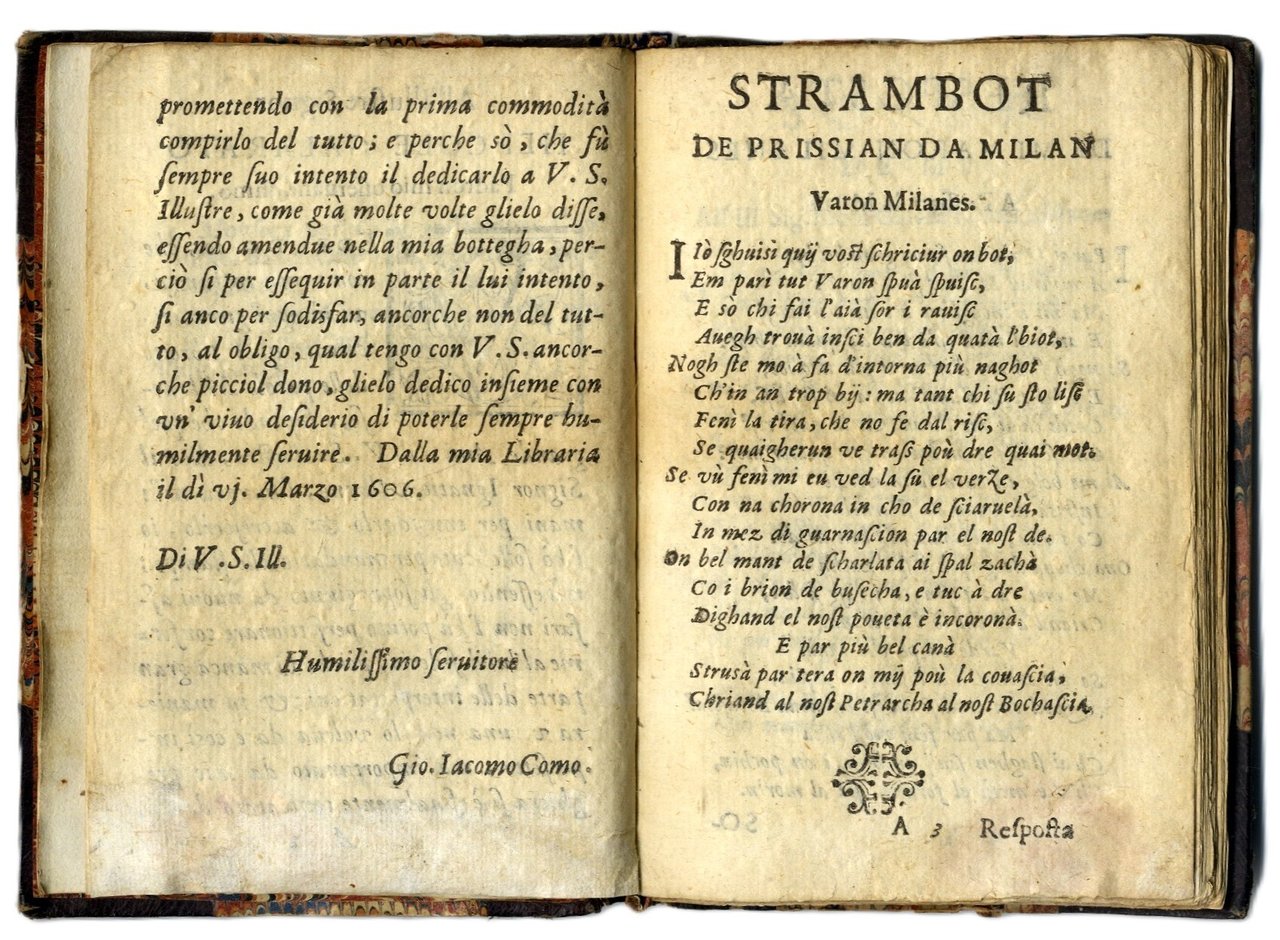 promettendo con la prima commodità
compirlo del tutto; e perche sò, che fù
ſempre ſuo intento il dedicarlo a V. S.
Illuſtre, come già molte volte glielo diſſe,
eſſendo amendue nella mia bottegha, per-
ciò ſi per eſſequir in parte il lui intento,
ſi anco per ſodisfar, ancorche non del tut-
to, al obligo, qual tengo con V. S. ancor-
che picciol dono, glielo dedico inſieme con
vn' viuo deſiderio di poterle ſempre hu-
milmente ſeruire. Dalla mia Libraria
il dì vj. Marzo 1606.
Di V. S. Ill.
Humiliſſimo ſeruitore
Gio. Iacomo Como.
STRAMBOT
DE PRISSIAN DA MILAN
Varon Milanes.
I Iò ſghuisì quij voſt ſchriciur on bot,
Em parì tut Varon ſpuà ſpuiſc,
E sò chi fai l'aià ſor i rauiſc
Auegh trouà inſcì ben da quatà l'biot,
Nogh ſte mo à fa d'intorna più naghot
Ch'in an trop bij: ma tant chi ſu ſto liſc
Fenì la tira, che no fe dal riſc,
Se quaigherun ve traſs poù dre quai mot.
Se vù fenì mi eu ved la ſù el verze,
Con na chorona in cho de ſciaruelà,
In mez di guarnaſcion par el noſt de.
On bel mant de ſcharlata ai ſpal zachà
Co i brion de buſecha, e tuc à dre
Dighand el noſt poueta è incoronà.
E par più bel canà
Struſà par tera on mij poù la couaſcia,
Chriand al noſt Petrarcha al noſt Bochaſcia.
A 3 Reſpoſta